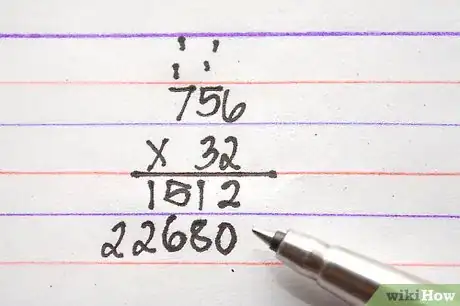 ' '
' '
756
x 32
1512
22680
wikiHow